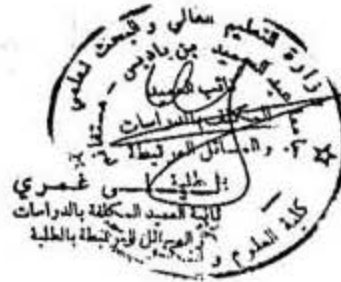 وزارة التعليم العالي و البحث العلمي
عبد الحميد بن باديس - مستغانم
نائب العميد
المكلف بالدراسات
و المسائل المرتبطة
غمري
نائبة العميد المكلفة بالدراسات
و المسائل المرتبطة بالطلبة
كلية العلوم و